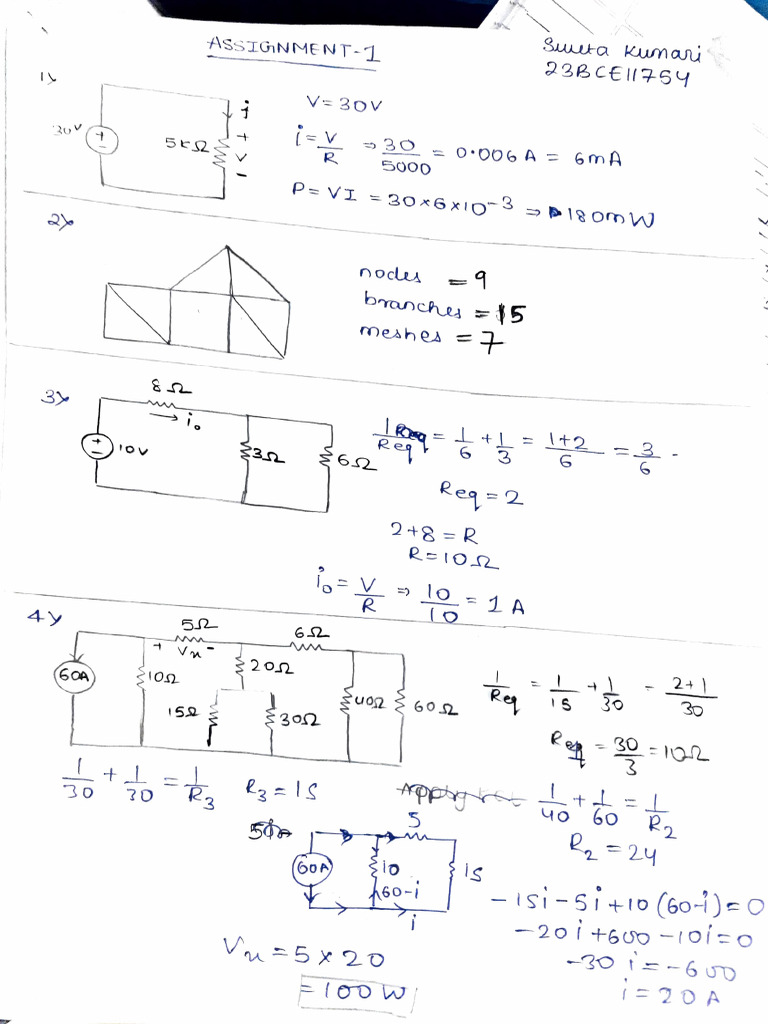 ASSIGNMENT-1
Sweta Kumari
23BCE11754
1)
30V
5kΩ
i
+
V
-
V=30V
i = V/R ⇒ 30/5000 = 0.006A = 6mA
P=VI = 30×6×10-3 ⇒ 180mW
2)
nodes = 9
branches = 15
meshes = 7
3)
8Ω
i₀
10V
3Ω
6Ω
1/Req = 1/6 + 1/3 = 1+2/6 = 3/6
Req = 2
2+8 = R
R = 10Ω
i₀ = V/R ⇒ 10/10 = 1 A
4)
5Ω
+ Vx -
6Ω
60A
10Ω
20Ω
15Ω
30Ω
40Ω
60Ω
1/Req = 1/15 + 1/30 = 2+1/30
Req = 30/3 = 10Ω
1/30 + 1/30 = 1/R₃
R₃ = 15
1/40 + 1/60 = 1/R₂
R₂ = 24
5
60A
10
60-i
15
i
-15i-5i+10(60-i)=0
-20i+600-10i=0
-30i=-600
i=20A
Vx = 5×20
=100W